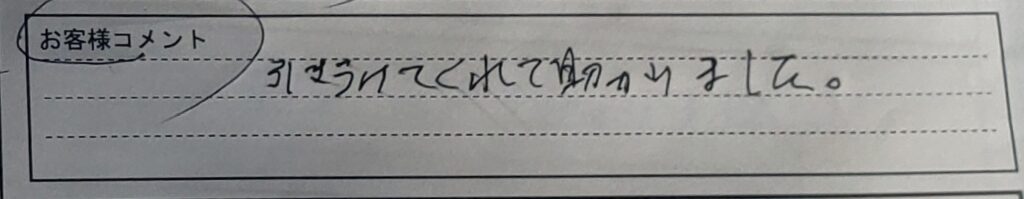 お客様コメント
引きうけてくれて助かりました。